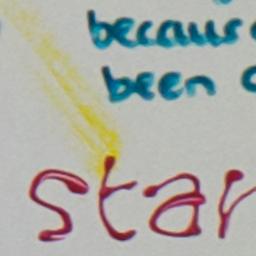 because
been
star